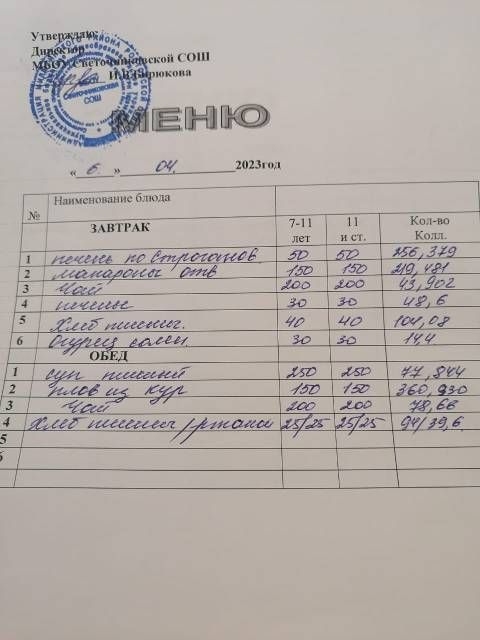 Утверждаю:
Директор
МБОУ Светочниковской СОШ
И.В.Бирюкова
МЕНЮ
« 6. » 04. 2023год
№ Наименование блюда
ЗАВТРАК 7-11 лет 11 и ст. Кол-во Колл.
1 печень по Строганов. 50 50 256,379
2 макароны отв 150 150 219,481
3 Чай 200 200 43,902
4 печенье 30 30 48,6
5 Хлеб пшенич. 40 40 104,08
6 Огурец солен. 30 30 14.4
ОБЕД
1 суп 250 250 77,844
2 плов из кур 150 150 360,930
3 Чай 200 200 78,66
4 Хлеб пшенич/ржаной 25/25 25/25 94/39,6.
5
6